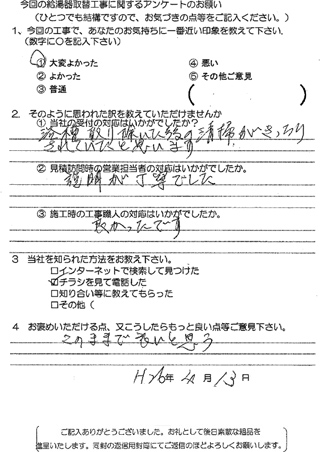 今回の給湯器取替工事に関するアンケートのお願い
(ひとつでも結構ですので、お気づきの点等をご記入ください。)
1、今回の工事で、あなたのお気持ちに一番近い印象を教えて下さい。
(数字に○を記入下さい)
① 大変よかった
② よかった
③ 普通
④ 悪い
⑤ その他ご意見
( )
2. そのように思われた訳を教えていただけませんか
① 当社の受付の対応はいかがでしたか?
浴槽取り除いた後の清掃がきっちり
されていたと思います
② 見積訪問時の営業担当者の対応はいかがでしたか。
説明が丁寧でした
③ 施工時の工事職人の対応はいかがでしたか。
良かったです
3 当社を知られた方法をお教え下さい。
□インターネットで検索して見つけた
☑チラシを見て電話した
□知り合い等に教えてもらった
□その他(
4 お褒めいただける点、又こうしたらもっと良い点等ご意見下さい。
このままで良いと思う
H26年 月 13日
ご記入ありがとうございました。お礼として後日素敵な粗品を
進呈いたします。同封の返信用封筒にてご返信のほどよろしくお願いします。